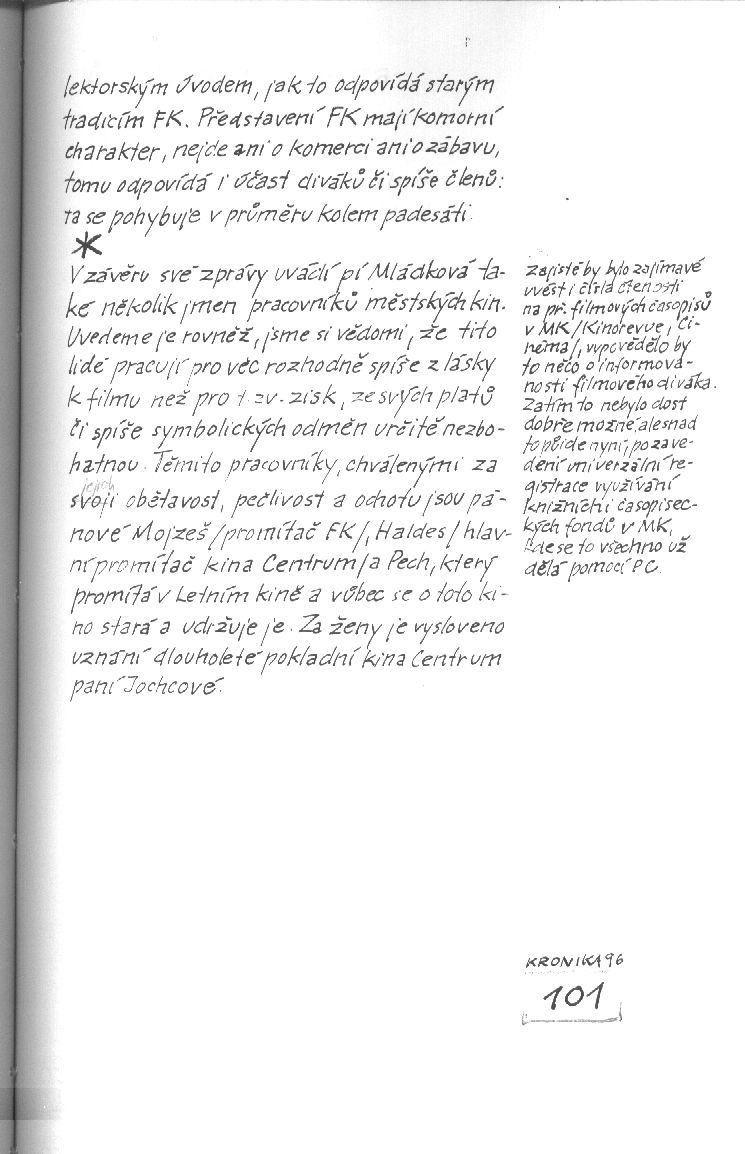 lektorským úvodem, jak to odpovídá starým
tradicím FK. Představení FK mají komorní
charakter, nejde ani o komerci ani o zábavu,
tomu odpovídá i účast diváků či spíše členů:
ta se pohybuje v průměru kolem padesáti.
*
V závěru své zprávy uvádí pí Mládková ta-
ké několik jmen pracovníků městských kin.
Uvedeme je rovněž, jsme si vědomi, že tito
lidé pracují pro věc rozhodně spíše z lásky
k filmu než pro t.zv. zisk, ze svých platů
či spíše symbolických odměn určitě nezbo-
hatnou. Těmito pracovníky, chválenými za
jejich
svoji obětavost, pečlivost a ochotu jsou pá-
nové Mojzeš /promítač FK/, Haldes /hlav-
ní promítač kina Centrum/ a Pech, který
promítá v Letním kině a vůbec se o toto ki-
no stará a udržuje je. Za ženy je vysloveno
uznání dlouholeté pokladní kina Centrum
paní Jochcové.
Zajisté by bylo zajímavé
uvést i čísla čtenosti
na př. filmových časopisů
v MK /Kinorevue, Ci-
néma/, vypovědělo by
to něco o informova-
nosti filmového diváka.
Zatím to nebylo dost
dobře možné, ale snad
to půjde nyní, po zave-
dení univerzální re-
gistrace využívání
knižních i časopisec-
kých fondů v MK,
kde se to všechno už
dělá pomocí PC.
KRONIKA 96
101